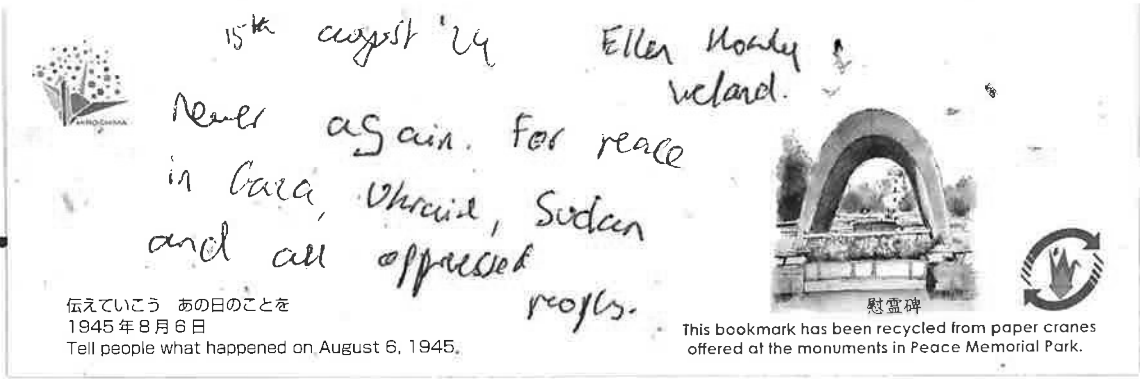 15th august '24
Ellen
Ireland.
Never again. For peace
in Gaza, Ukraine, Sudan
and all oppressed
peoples.
HIROSHIMA
慰霊碑
伝えていこう　あの日のことを
1945年8月6日
Tell people what happened on August 6, 1945.
This bookmark has been recycled from paper cranes
offered at the monuments in Peace Memorial Park.